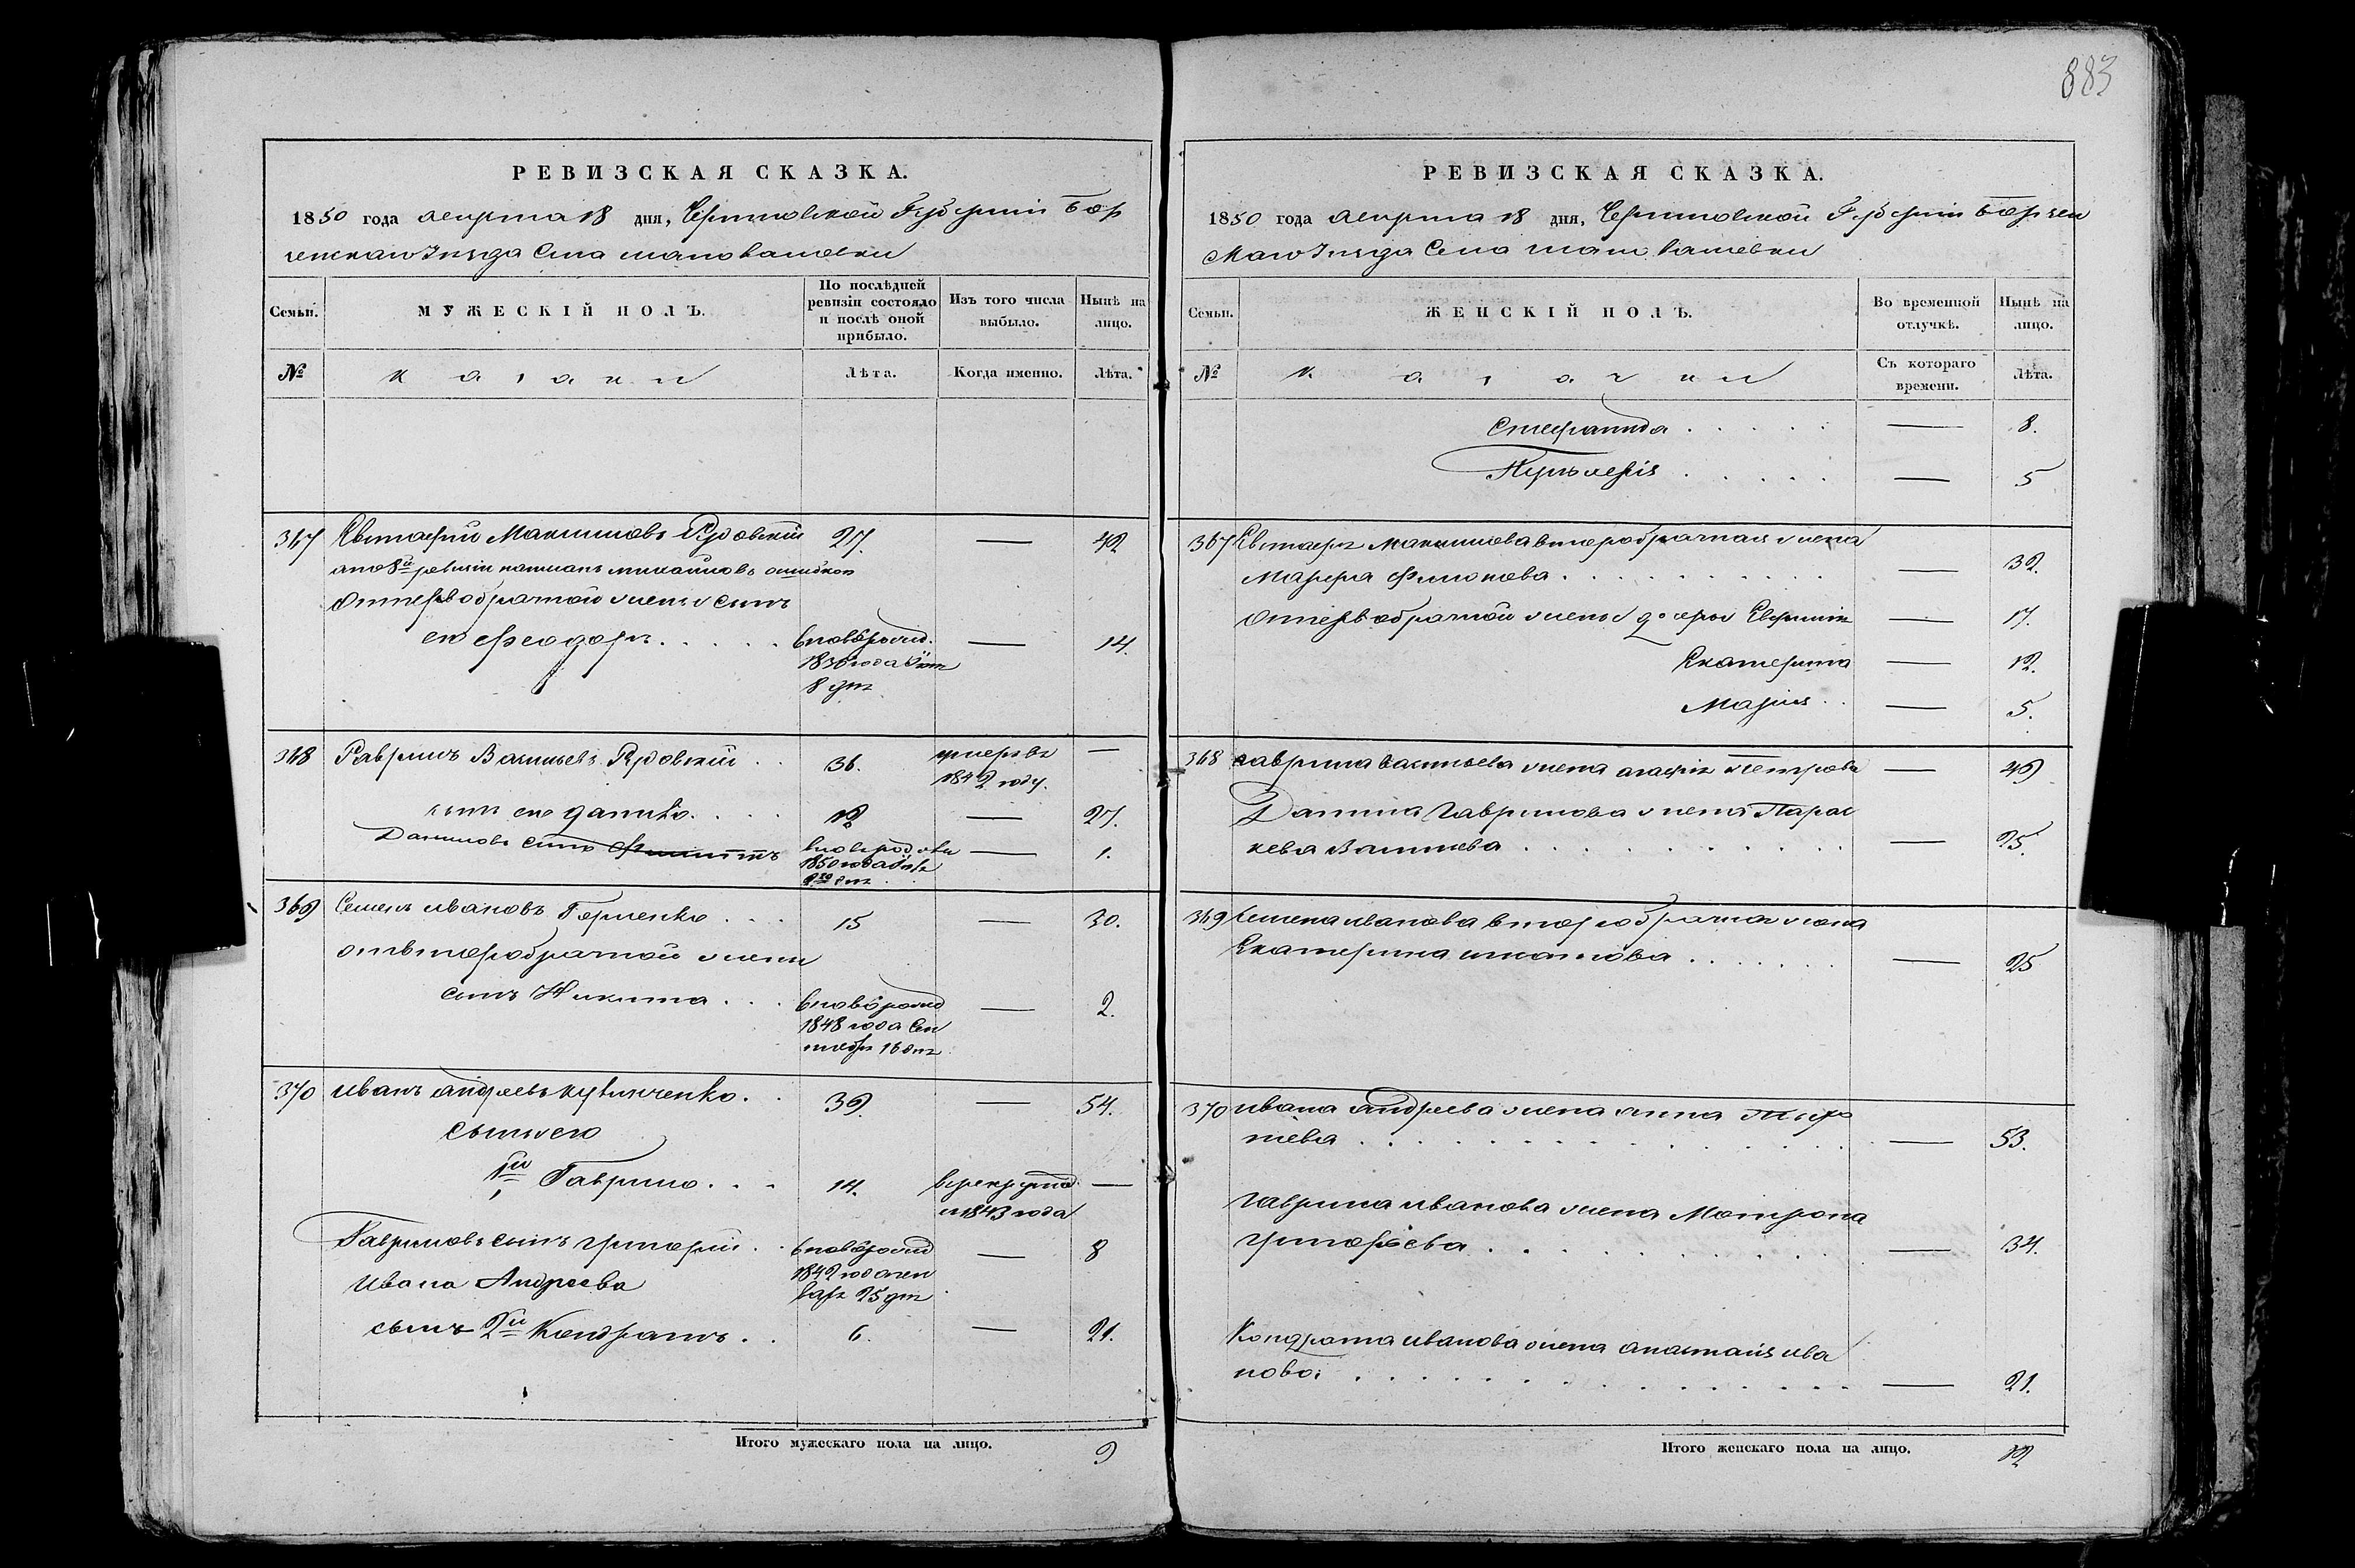 883
РЕВИЗСКАЯ СКАЗКА.
1850 года августа 18 дня, Черниговской Губернии Бор
зенскаго Уезда Села
Семьи. МУЖЕСКІЙ ПОЛЪ. По послѣдней ревизіи состояло и послѣ оной прибыло. Изъ того числа выбыло. Нынѣ на лицо.
№ казаки Лѣта. Когда именно. Лѣта.
367 Евстафій Максимовъ Рудовскій 27. — 42
а по 8й ревизіи написанъ Михайловъ ошибкою
от первобрачной жены сынъ
его Феодоръ. . . . . вновь рожд. — 14.
1836 года
8 дня
368 Гаврило Васильевъ Рудовскій . . 36. умеръ въ —
1842 году.
сынъ его Данило. . . . 12 — 27.
Даниловъ сынъ Филиппъ — 1.
1850 года
369 Семенъ Ивановъ Гориенко . . . 15 — 30.
отъ второбрачной жены
сынъ Никита . . . вновь рожд — 2.
1848 года Сен
тября 16 дня
370 Иванъ Андреевъ . . 39. — 54.
сыны его
1й Гаврило . . . 14. в рекрут —
1843 года
Гавриловъ сынъ Григорій . . вновь рожд — 8
Ивана Андреева 1842 года ген
варя 25 дня
сынъ 2й Кондратъ . . 6. — 21.
Итого мужескаго пола на лицо. 9
РЕВИЗСКАЯ СКАЗКА.
1850 года августа 18 дня, Черниговской Губернии Борзен
скаго Уезда Села
Семьи. ЖЕНСКІЙ ПОЛЪ. Во временной отлучкѣ. Нынѣ на лицо.
№ казачки Съ котораго времени. Лѣта.
Степанида . . . . . — 8.
Пульхерія . . . . . — 5
367 Евстафія Максимова второбрачная жена
Марфа Филипова . . . . . . . — 32.
От первобрачной жены дочери Евфимія — 17.
Екатерина — 12.
Марія . . — 5.
368 Гаврила Васильева жена Агафія Петрова — 49
Данила Гаврилова жена Парас
кева . . . . . . . — 25.
369 Семена Иванова второбрачная жена
Екатерина Игнатова . . . . . . — 25
370 Ивана Андреева жена Анна
. . . . . . . . . — 53.
Гаврила Иванова жена Матрона
Григорьева . . . . . . . — 34.
Кондрата Иванова жена Анастасія Ива
нова . . . . . . . . . — 21.
Итого женскаго пола на лицо. 12